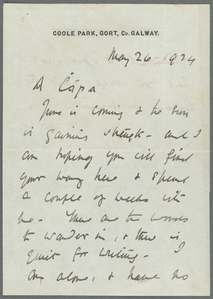 COOLE PARK, GORT, Co. GALWAY.
May 26 - 1924
A Cara
June is coming & the Sun
is gaining strength - and I
am hoping you will find
your way here & spend
a couple of weeks with
me - There are the woods
to wander in, & there is
quiet for writing - I
am alone, & have no